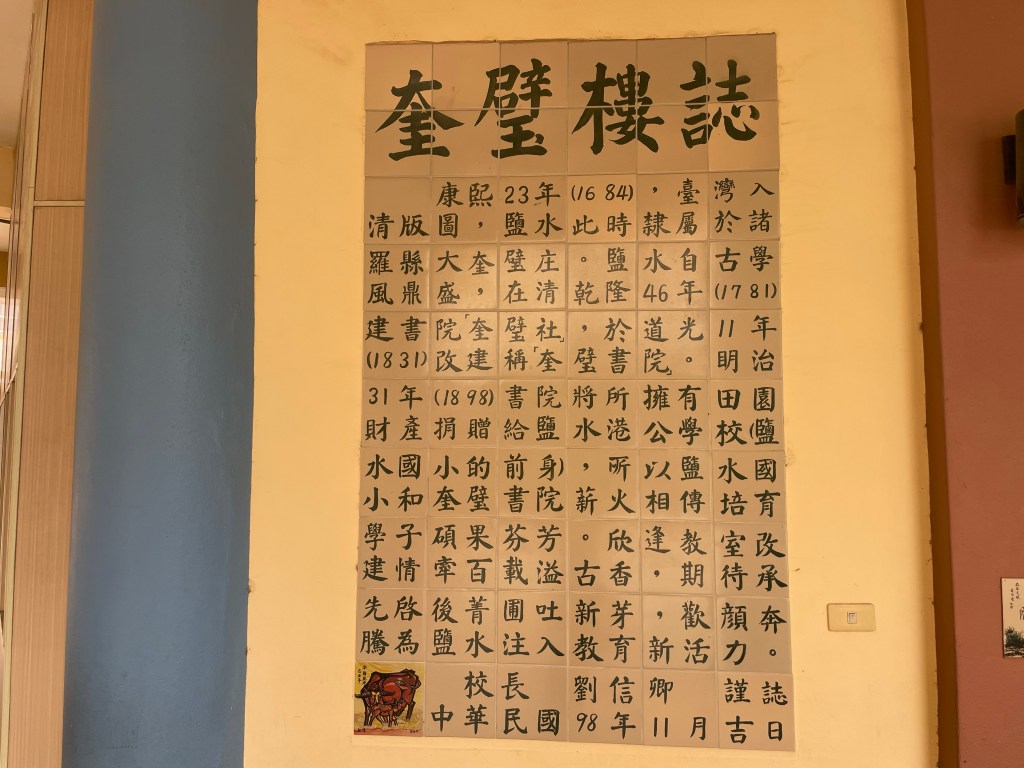 奎璧樓誌
康熙23年(1684),臺灣入
清版圖,鹽水此時隸屬於諸
羅縣大奎璧庄。鹽水自古學
風鼎盛,在清乾隆46年(1781)
建書院「奎璧社」,於道光11年
(1831)改建稱「奎璧書院。眀治
31年(1898)書院將所擁有田園
財產捐贈給鹽水港公學校(鹽
水國小的前身),所以鹽水國
小和奎璧書院薪火相傳培育
學子碩果芬芳。欣逢教室改
建情牽百載溢古香,期待承
先啓後菁圃吐新芽,歡顏奔
騰為鹽水注入新教育新活力。
校長劉信卿謹誌
中華民國98年11月吉日